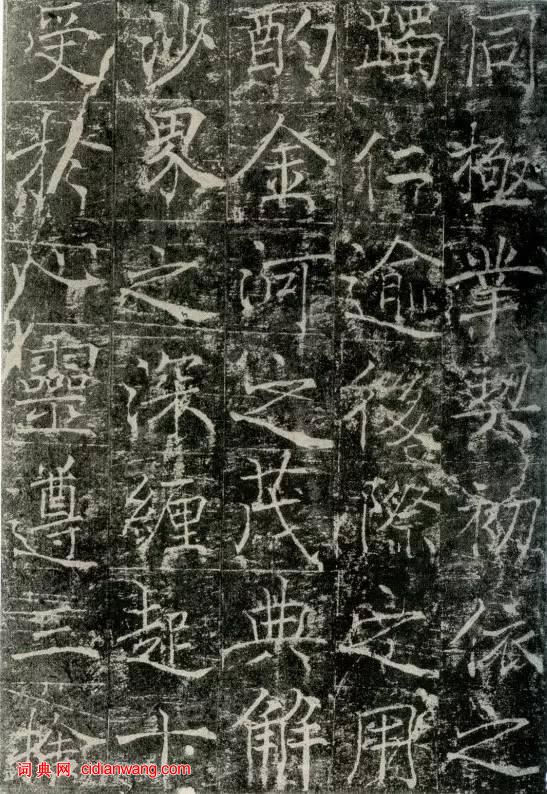 同極契初依之
躅仁逾後際之用
酌金河之茂典解
沙界之深纏起十
受於心靈遵三
词典网 cidianwang.com